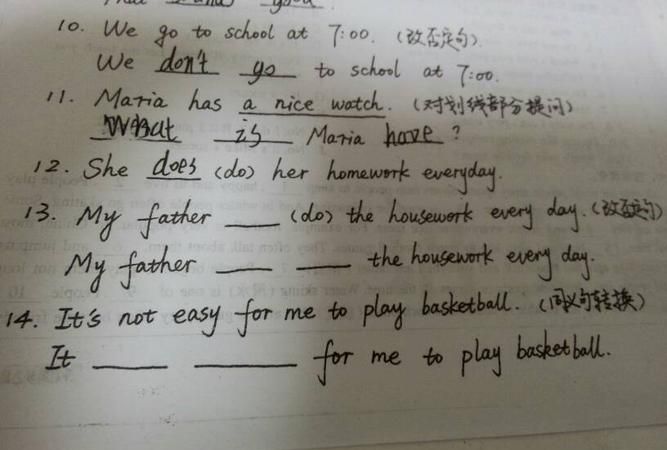 10. We go to school at 7:00. (改否定句)
We don't go to school at 7:00.
11. Maria has a nice watch. (对划线部分提问)
What is Maria have?
12. She does (do) her homework everyday.
13. My father ____ (do) the housework every day. (改否定句)
My father ____ ____ the housework every day.
14. It's not easy for me to play basketball. (同义句转换)
It ____ ____ for me to play basketball.